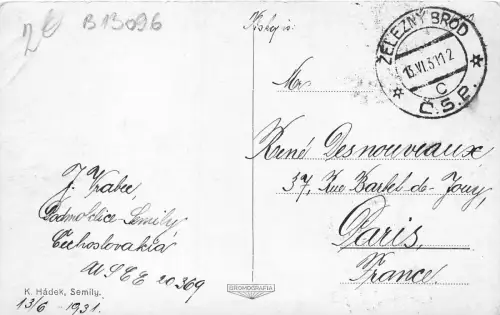 B 13096
ŽELEZNÝ BROD
13.VI.31 12
C
Č.S.P.
Mr
René Desnouveaux
37, Rue Barbet-de-Jouy,
Paris,
France.
J. Vrabec,
Podmoklice-Semily,
Čechoslovakia
USCEE 20369
K. Hádek, Semily.
13/6 - 1931.
GROMOGRAFIA